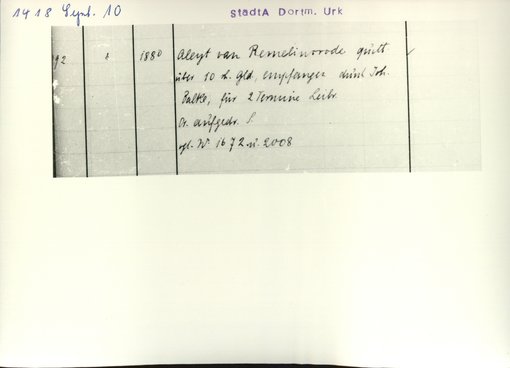 1418 Sept. 10
StadtA Dortm. Urk
92 1880 Aleyt van Remelincrode quitt
über 10 rh. gld, empfangen durch Joh.
Palke, für 2 Termine Leibr.
Or. aufgedr. S.
vgl. Nr. 1672 u. 2008